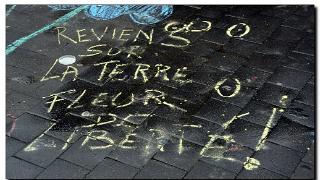 REVIENS
SUR
LA TERRE
FLEUR
DE
LIBERTÉ !